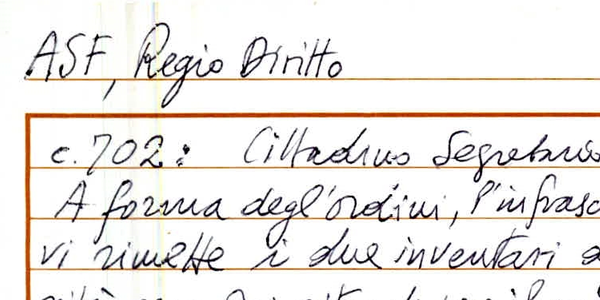 ASF, Regio Diritto
c. 702: Cittadino Segretario
A forma degl'ordini, l'infrasc
vi rimette i due inventari